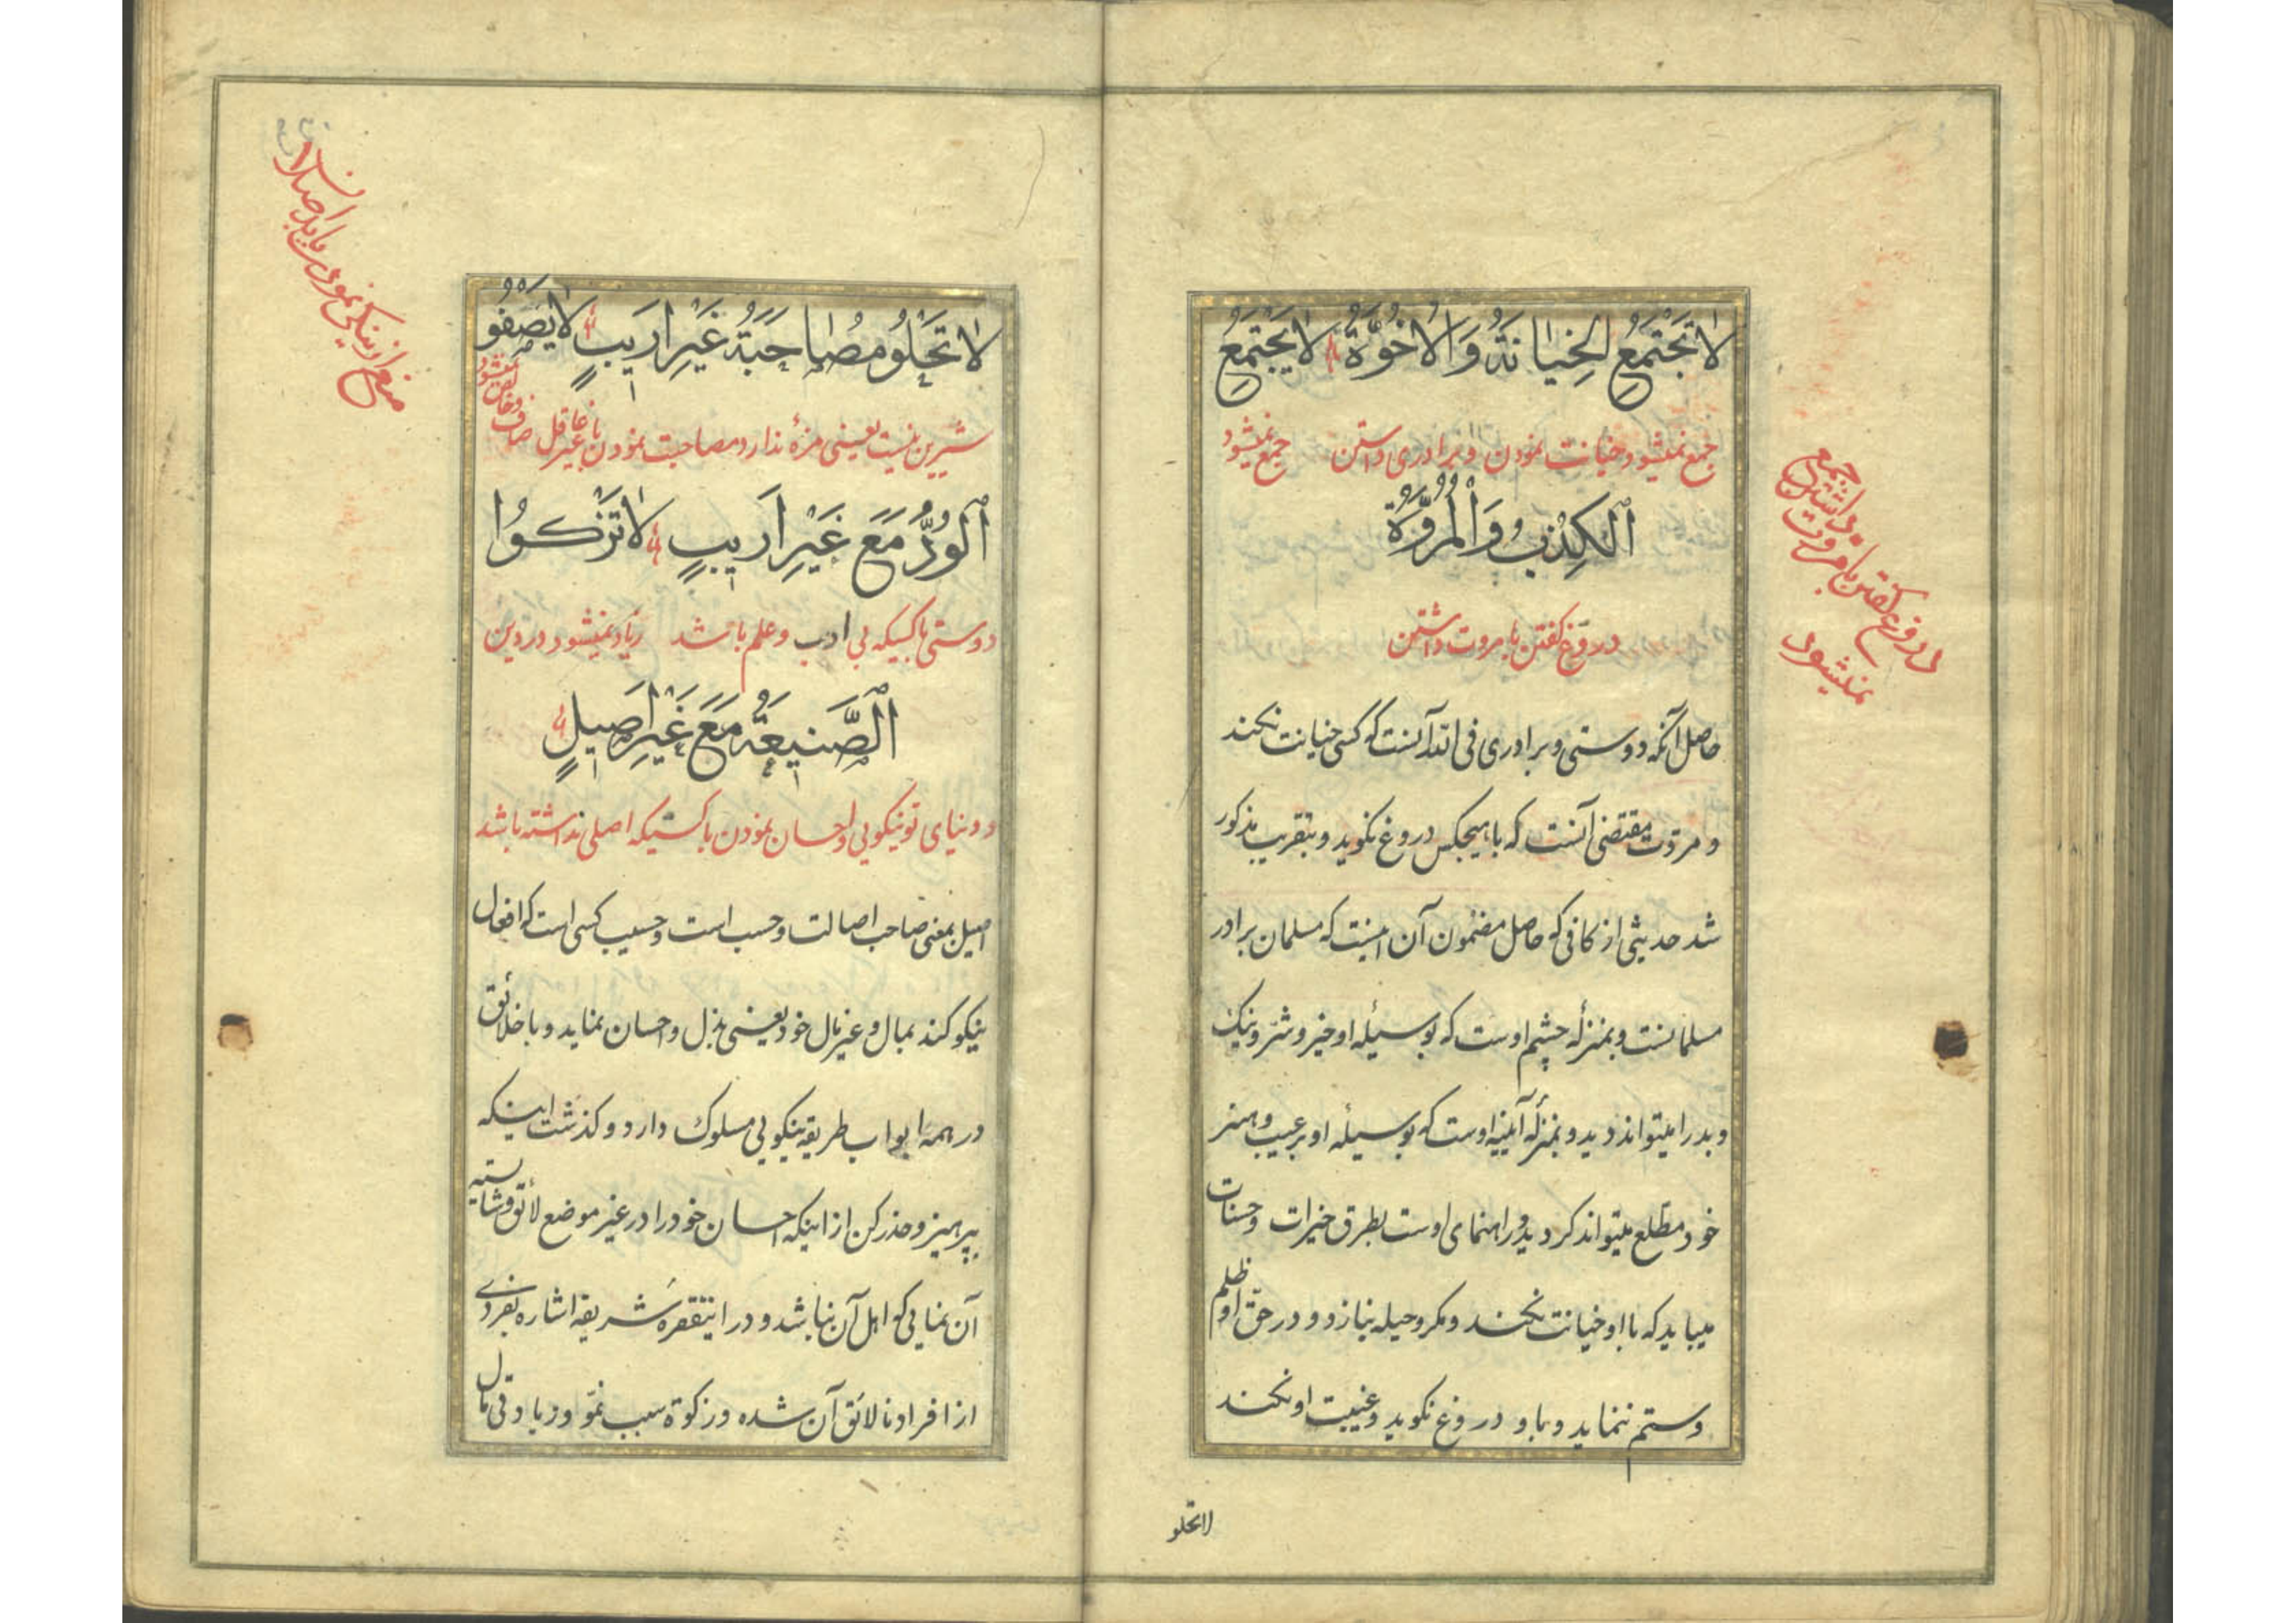 لَا تَجْتَمِعُ الْخِيَانَةُ وَالْأُخُوَّةُ لَا يَجْتَمِعُ
جمع نمیشود خیانت نمودن و برادری داشتن جمع نمیشود
الْكِذْبُ وَالْمُرُوَّةُ
دروغ گفتن با مروت داشتن
حاصل آنکه دوستی و برادری فی الله آنست که کسی خیانت نکند
و مروّت مقتضی آنست که با هیچکس دروغ نگوید و بتقریب مذکور
شد حدیثی از کافی که حاصل مضمون آن اینست که مسلمان برادر
مسلمانست و بمنزلهٔ چشم اوست که بوسیلهٔ او خیر و شرّ و نیک
و بد را میتواند دید و بمنزلهٔ آیینهٔ اوست که بوسیلهٔ او بر عیب و هنر
خود مطّلع میتواند کردید و راهنمای اوست بطرق خیرات و حسنات
میباید که با او خیانت نکند و مکر و حیله نبازد و در حقّ او ظلم
و ستم ننماید و باو دروغ نگوید و غیبت او نکند
لاتحلو
جمع
داشتن
دروغ گفتن با مروت
نمیشود
لَا تَحْلُو مُصَاحَبَةُ غَيْرِ أَرِيبٍ لَا يَصْفُو
شیرین نیست یعنی مزهٔ ندارد مصاحبت نمودن با غیر عاقل صاف و خالص نمیشود
الْوُدُّ مَعَ غَيْرِ أَرِيبٍ لَا تَزْكُوا
دوستی با کسیکه بی ادب و علم باشد زیاد نمیشود در دین
الصَّنِيعَةُ مَعَ غَيْرِ أَصِيلٍ
و دنیای تو نیکویی و احسان نمودن با کسیکه اصلی نداشته باشد
اصیل بمعنی صاحب اصالت و حسب است و حسیب کسی است که افعال
نیکو کند بمال و غیر مال خود یعنی بذل و احسان نماید و با خلائق
در همه ابواب طریقهٔ نیکویی مسلوک دارد و کذشت اینکه
بپرهیز و حذر کن از اینکه احسان خود را در غیر موضع لائق و شایسته
آن نمایی که اهل آن نباشد و در اینفقرهٔ شریفه اشاره بفردی
از افراد نالائق آن شده و زکوة سبب نموّ و زیادتی مال